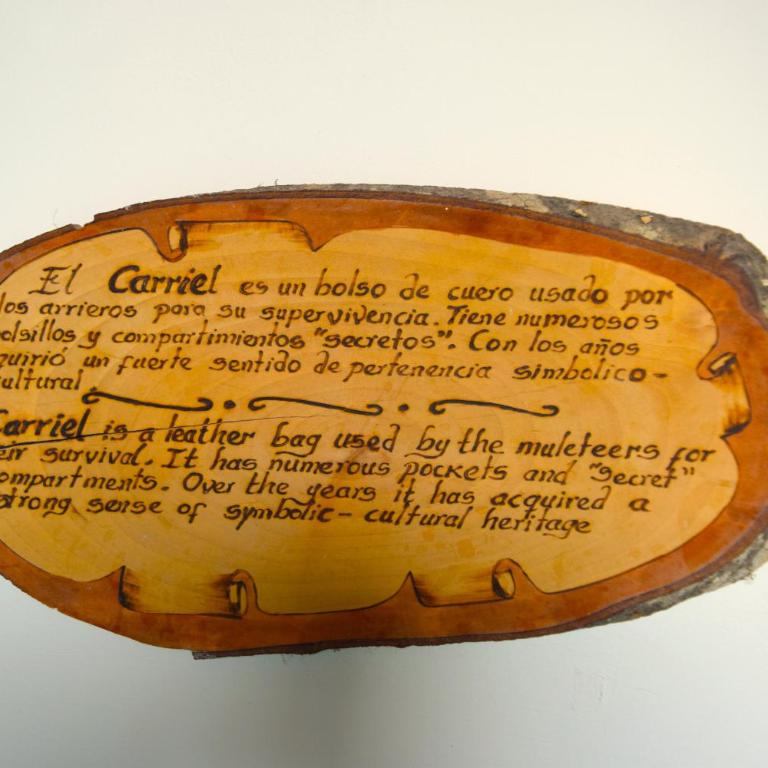 El Carriel es un bolso de cuero usado por
los arrieros para su supervivencia. Tiene numerosos
olsillos y compartimientos "secretos". Con los años
quirió un fuerte sentido de pertenencia simbolico-
ultural
Carriel is a leather bag used by the muleteers for
eir survival. It has numerous pockets and "secret"
ompartments. Over the years it has acquired a
strong sense of symbolic-cultural heritage